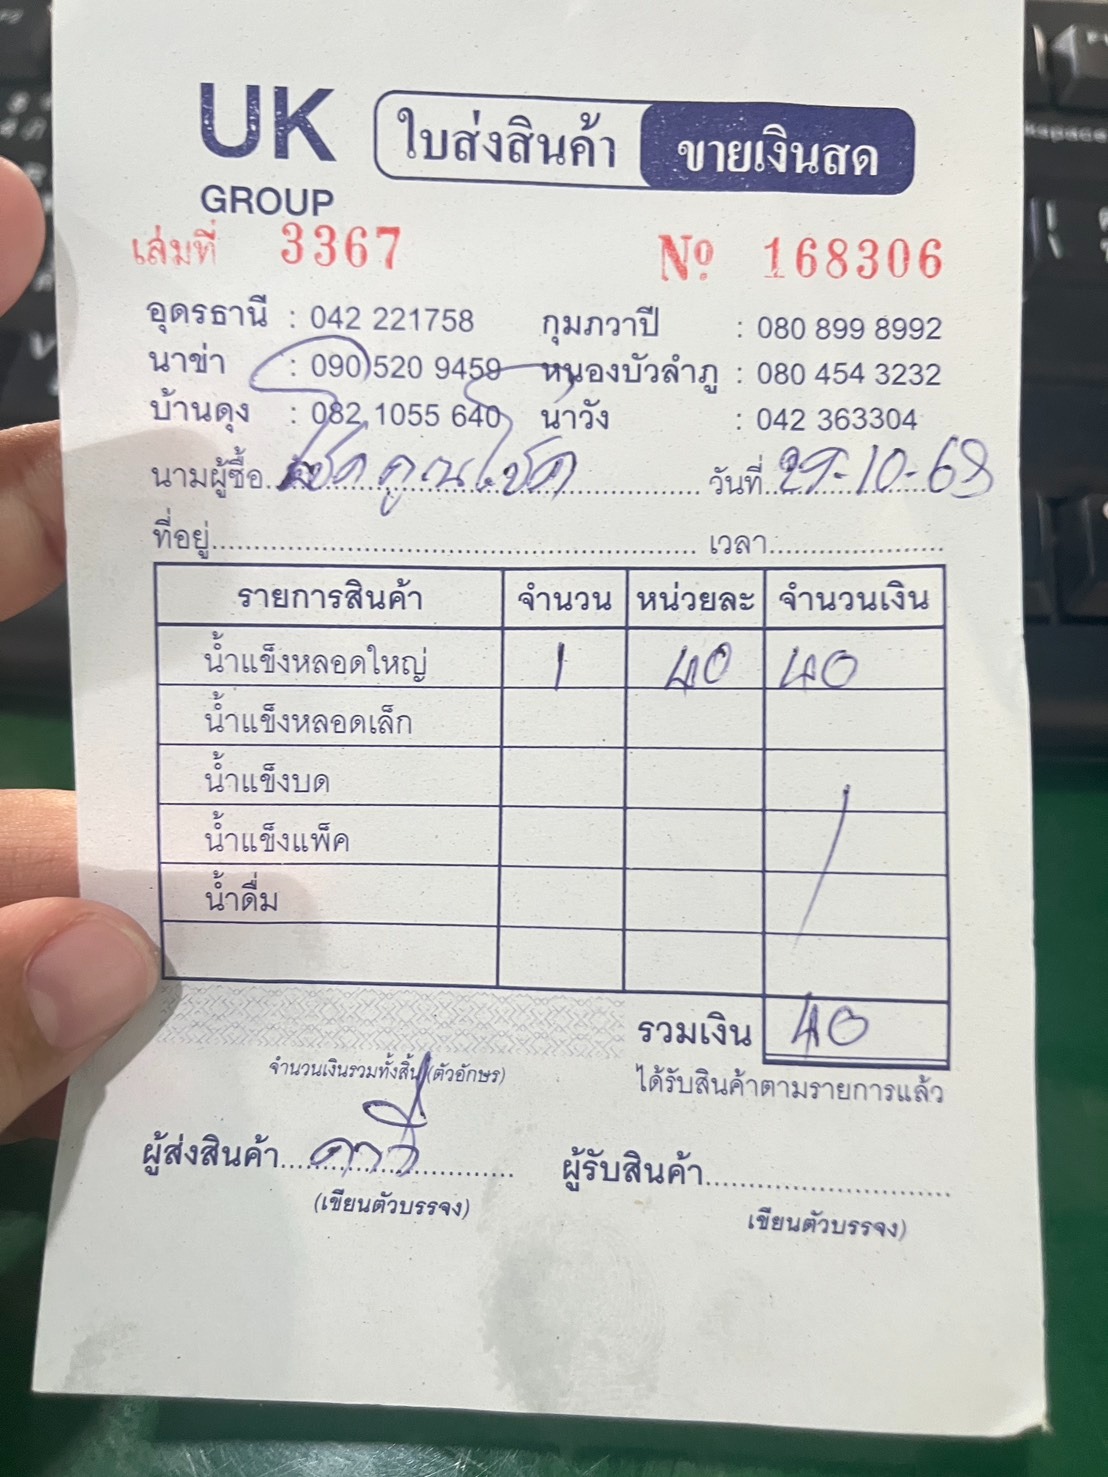 UK
GROUP
ใบส่งสินค้า ขายเงินสด
เล่มที่ 3367 Nº 168306
อุดรธานี : 042 221758 กุมภวาปี : 080 899 8992
นาข่า : 090 520 9459 หนองบัวลำภู : 080 454 3232
บ้านดุง : 082 1055 640 นาวัง : 042 363304
นามผู้ชื้อ โชคคูณโชค วันที่ 29-10-68
ที่อยู่ เวลา
รายการสินค้า จำนวน หน่วยละ จำนวนเงิน
น้ำแข็งหลอดใหญ่ 1 40 40
น้ำแข็งหลอดเล็ก
น้ำแข็งบด
น้ำแข็งแพ็ค
น้ำดื่ม
รวมเงิน 40
จำนวนเงินรวมทั้งสิ้น (ตัวอักษร) ได้รับสินค้าตามรายการแล้ว
ผู้ส่งสินค้า ผู้รับสินค้า
(เขียนตัวบรรจง) เขียนตัวบรรจง)